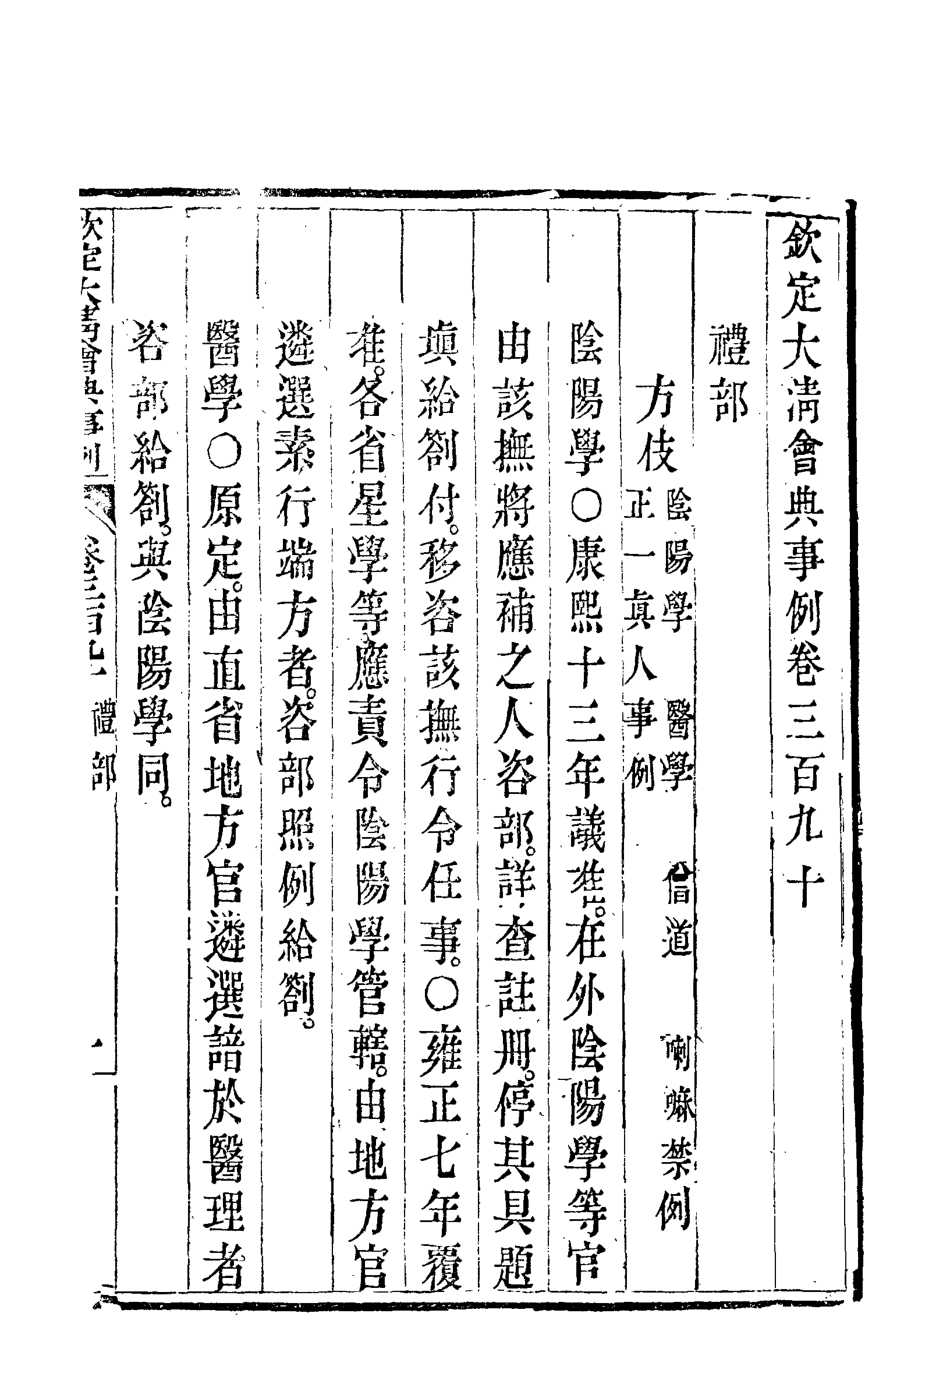 欽定大清會典事例卷三百九十
禮部
方伎 陰陽學 醫學 僧道 喇嘛禁例
正一眞人事例
陰陽學〇康熙十三年議准。在外陰陽學等官
由該撫將應補之人咨部。詳查註冊。停其具題
塡給劄付。移咨該撫行令任事。〇雍正七年覆
准。各省星學等應責令陰陽學管轄。由地方官
遴選素行端方者。咨部照例給劄。
醫學〇原定。由直省地方官遴選諳於醫理者
咨部給劄。與陰陽學同。
欽定大清會典事例 卷三百九十 禮部 一